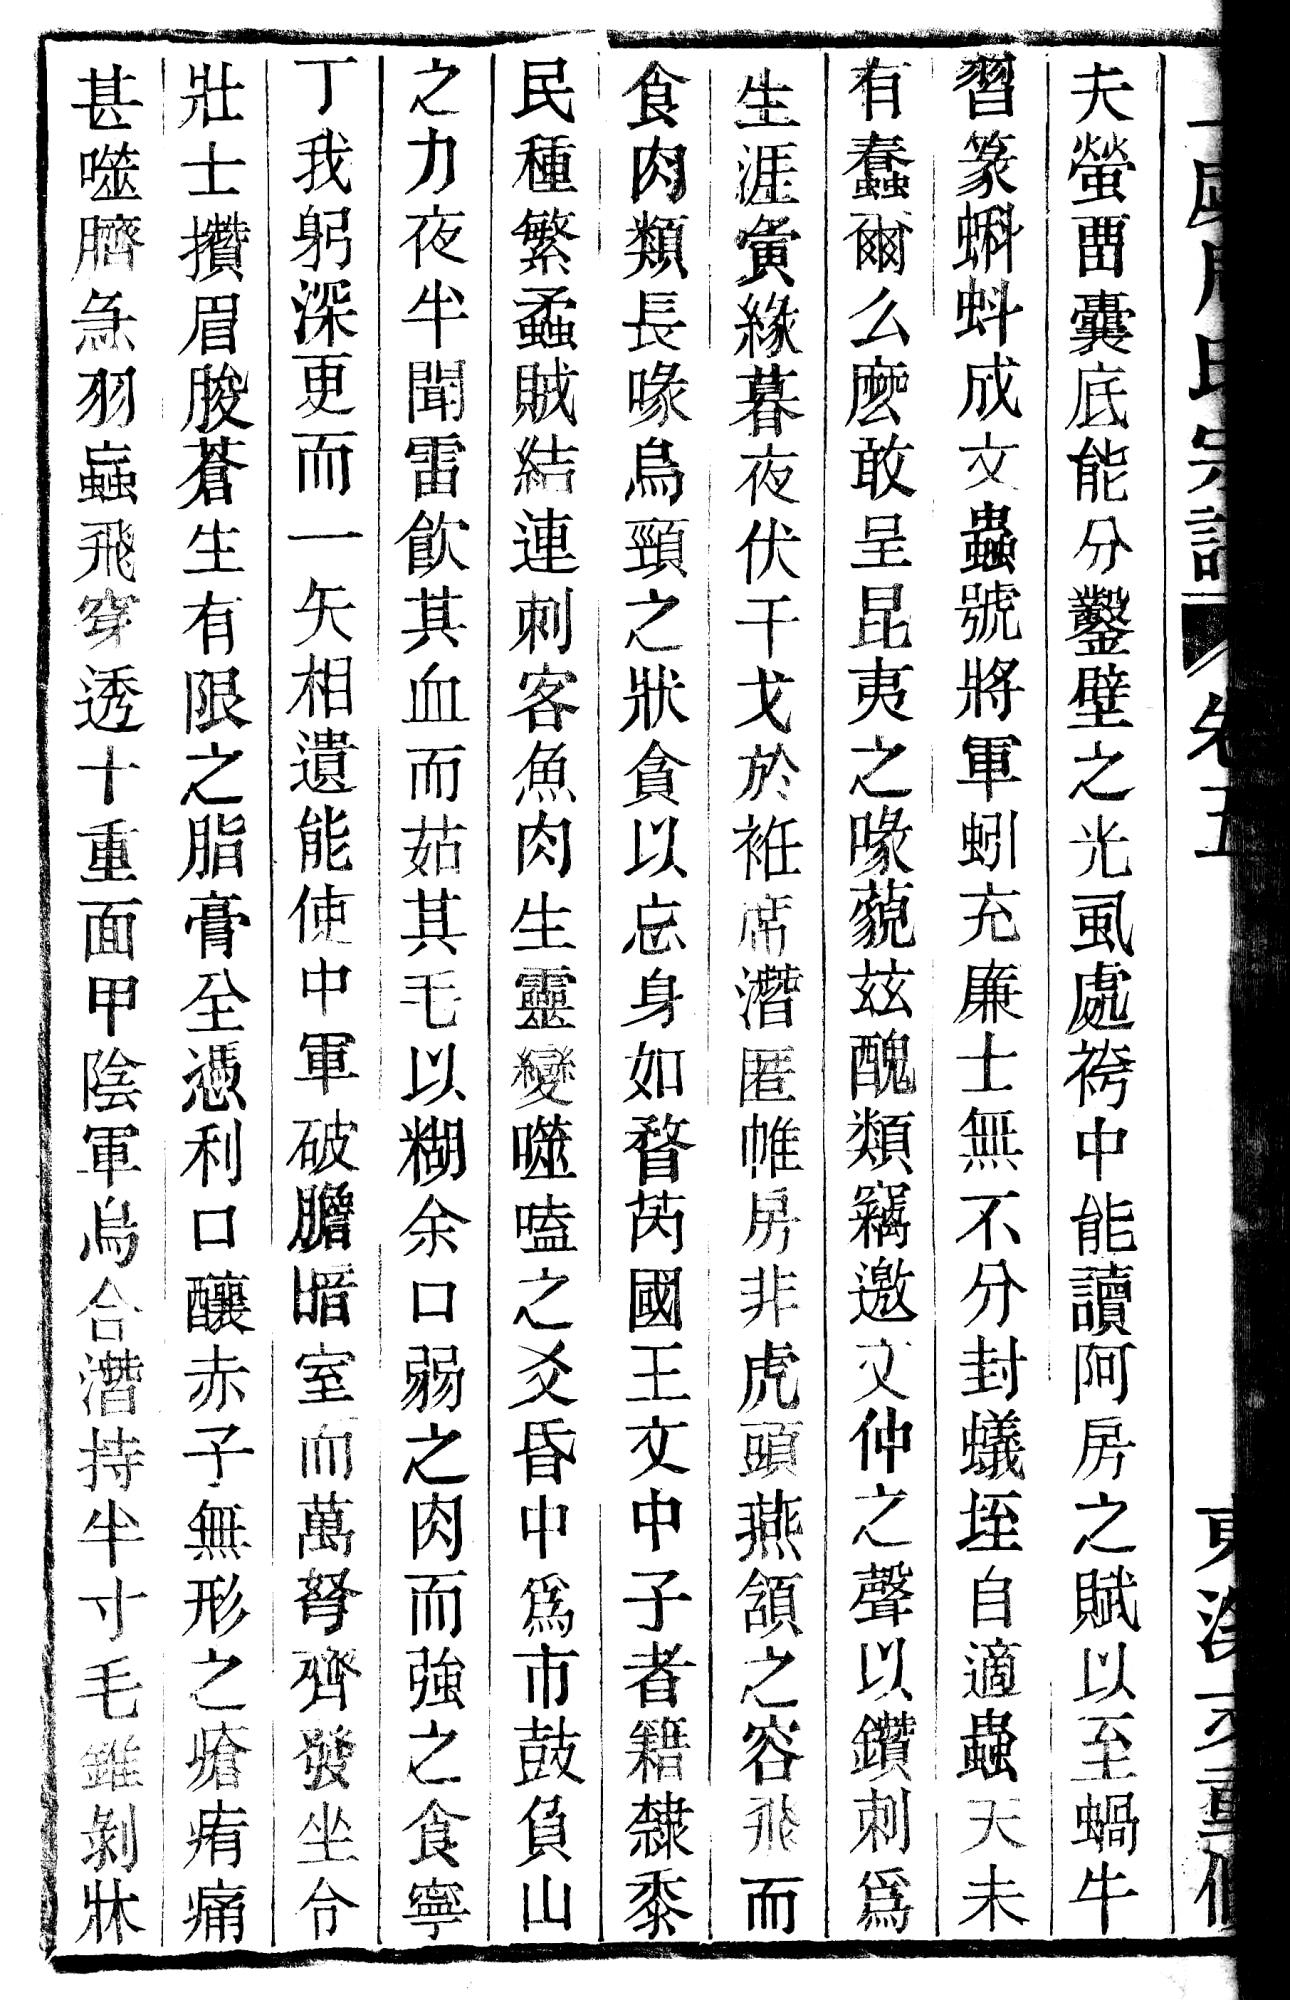 氏宗譜 卷五
夫螢曲囊底能分鑿壁之光虱處袴中能讀阿房之賦以至蝸牛
習篆蝌蚪成文蟲號將軍蚓充廉士無不分封蟻垤自適蟲天未
有蠢爾么麽敢呈昆夷之喙藐玆醜類竊邀文仲之聲以鑽刺爲
生涯夤緣暮夜伏干戈於袵席潛匿帷房非虎頭燕頷之容飛而
食肉類長喙烏頸之狀貪以忘身如瞀芮國王文中子者籍隸黍
民種繁蟊賊結連刺客魚肉生靈變噬嗑之爻昏中爲市鼓負山
之力夜半聞雷飲其血而茹其毛以糊余口弱之肉而強之食寧
丁我躬深更而一矢相遺能使中軍破膽暗室而萬弩齊發坐令
壯士攢眉朘蒼生有限之脂膏全憑利口釀赤子無形之瘡痏痛
甚噬臍急羽蟲飛穿透十重面甲陰軍烏合潛持半寸毛錐剝牀